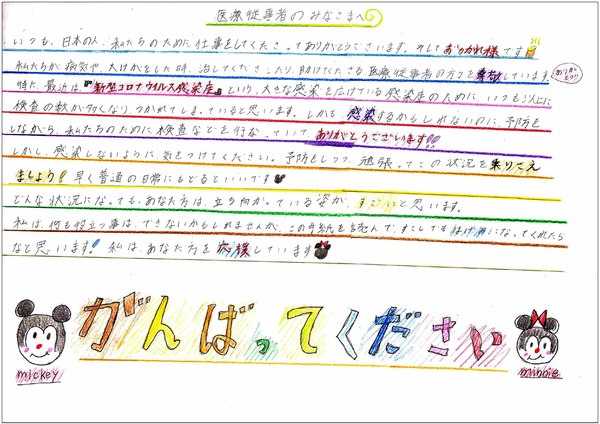 医療従事者のみなさまへ
いつも、日本の人、私たちのために仕事をしてくださってありがとうございます。そしておつかれ様です
私たちが病気や、大けがをした時、治してくださったり、助けてくださる医療従事者の方々を尊敬しています。
ありがとう!!
特に、最近は、『新型コロナウイルス感染症』という、大きな感染を広げている感染症のために、いつもより以上に
検査の数が多くなり、つかれてしまっていると思います。しかも、感染するかもしれないのに、予防を
しながら、私たちのために検査などを行なっていて、ありがとうございます!!
しかし、感染しないように気をつけてください。予防をしつつ、頑張ってこの状況を乗りこえ
ましょう!早く普通の日常にもどるといいです
どんな状況になっても、あなた方は、立ち向かっている姿が、すごいと思います。
私は、何も役立つ事は、できないかもしれませんが、この手紙を読んで、すこしでもはげみになってくれたら
なと思います!私は、あなた方を応援しています
がんばってください
mickey
minnie